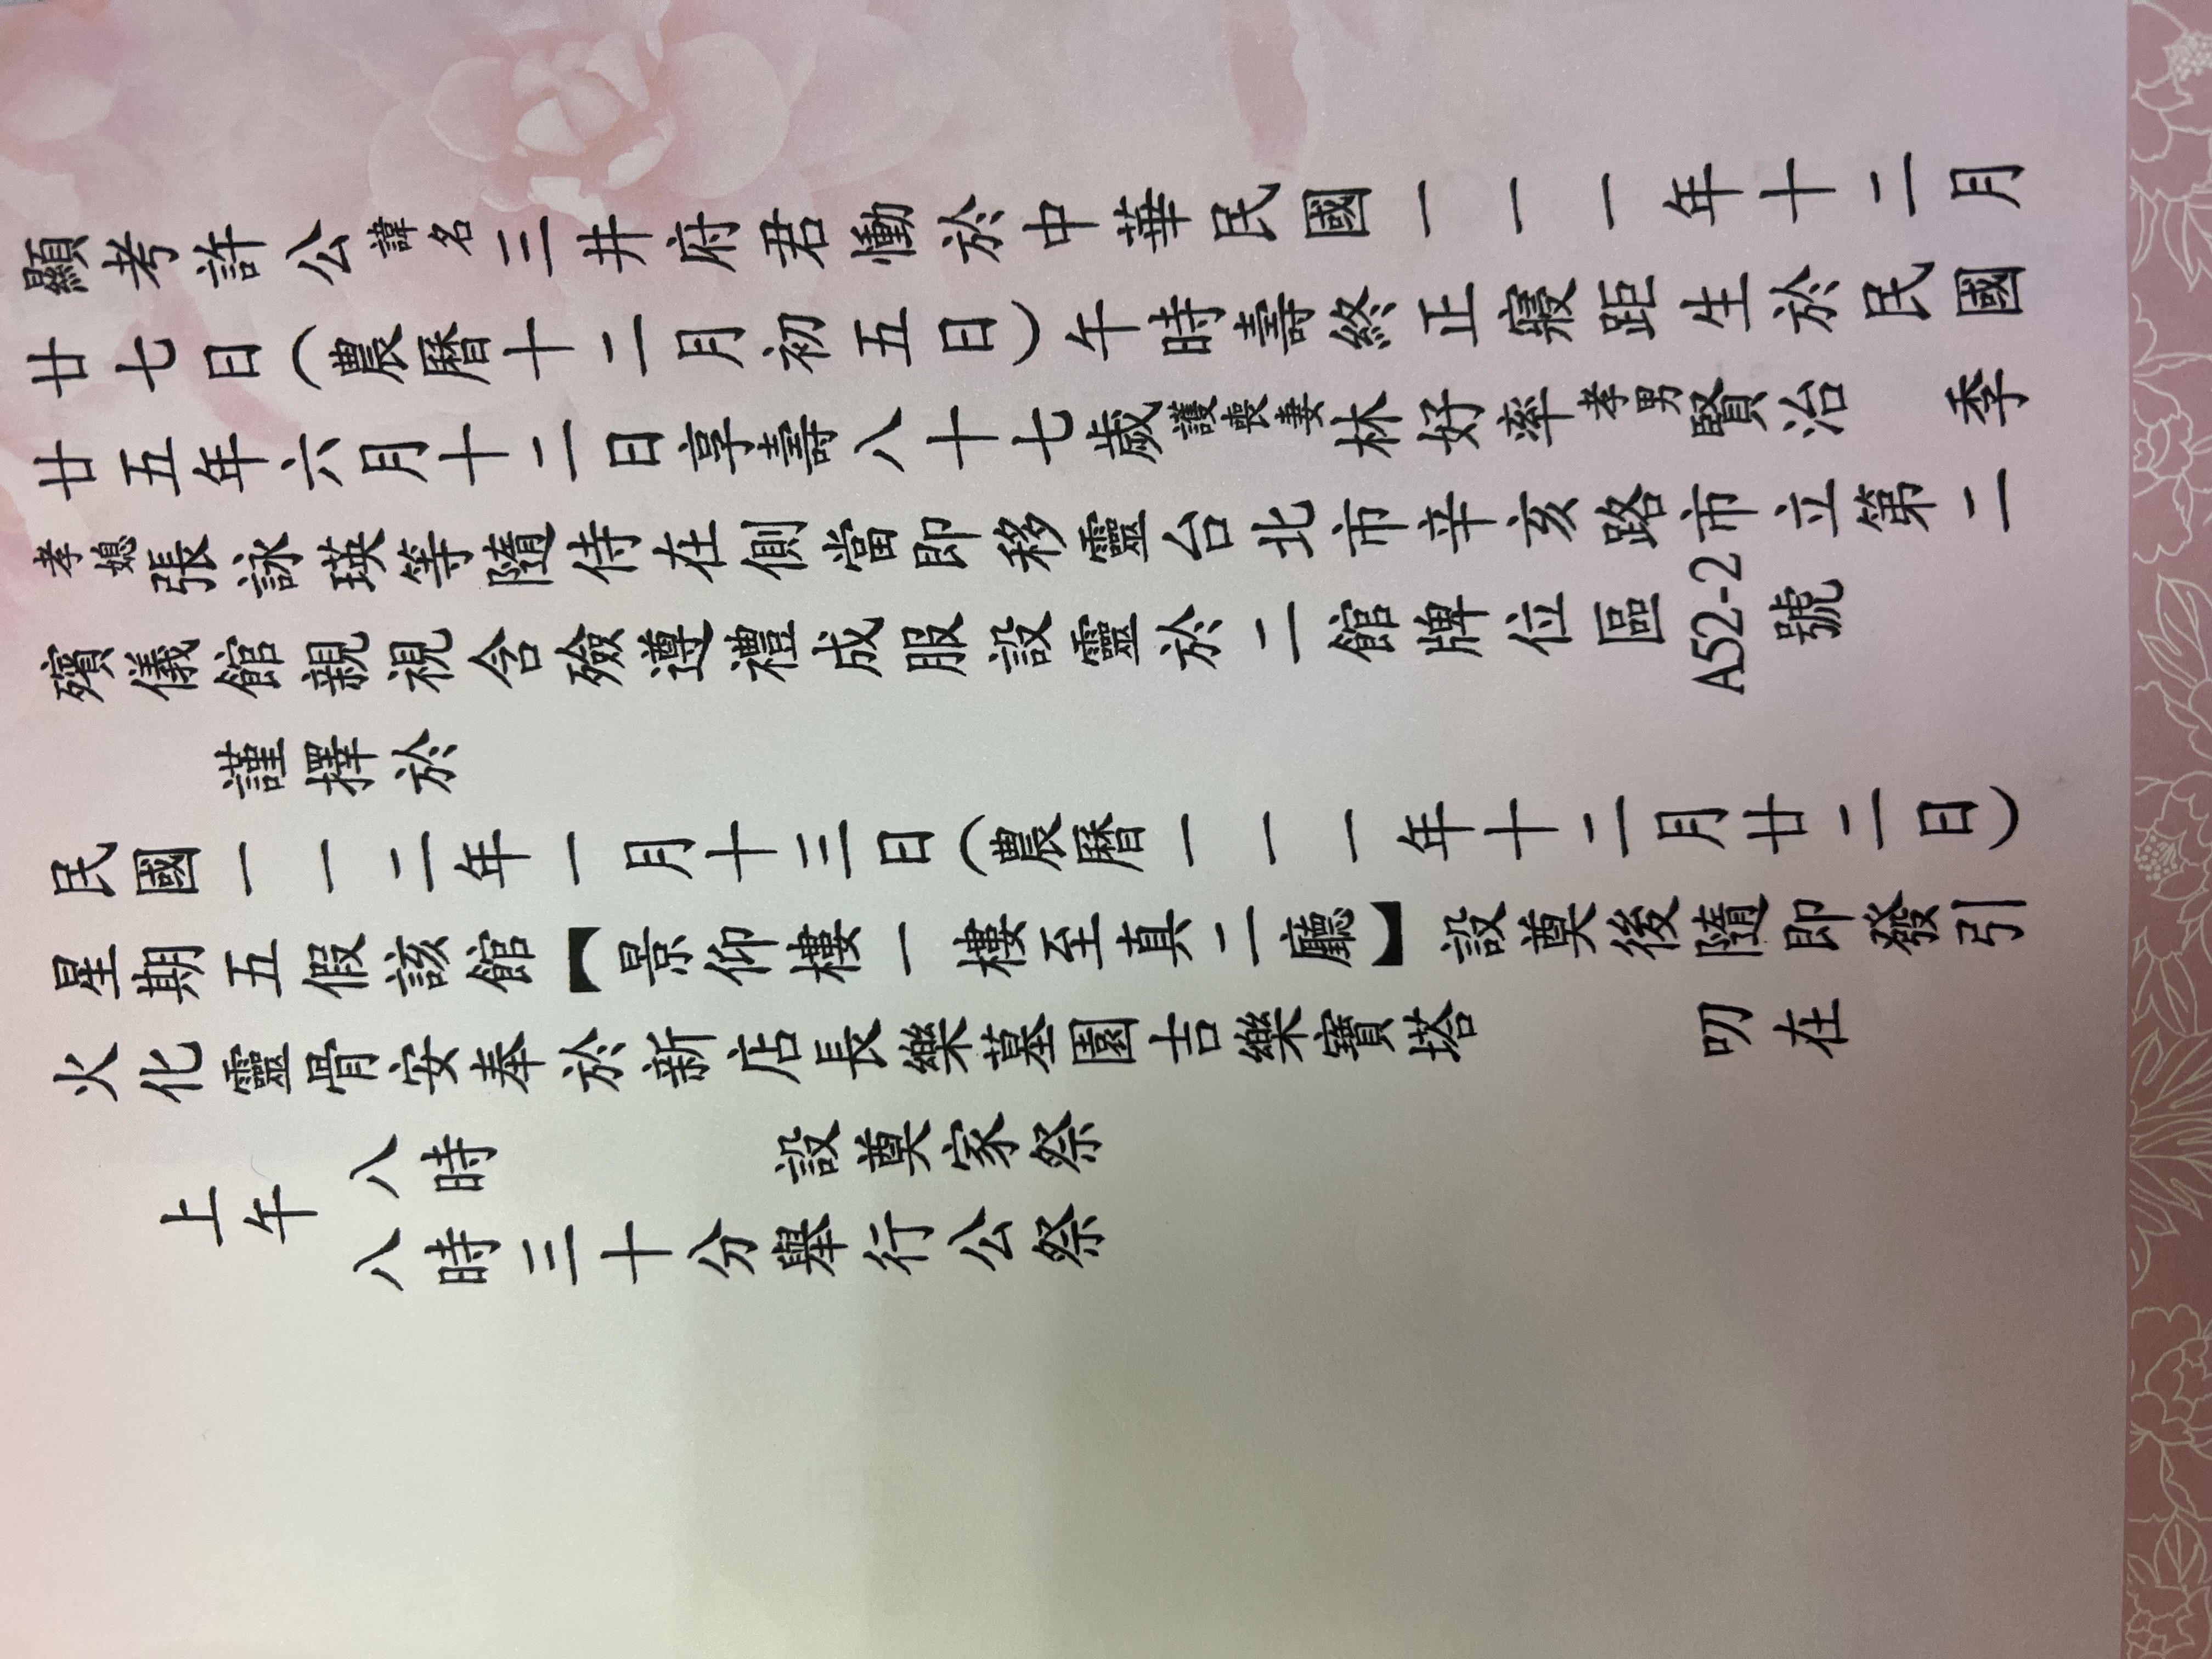 顯考許公諱名三井府君慟於中華民國一一一年十二月
廿七日(農曆十二月初五日)午時壽終正寢距生於民國
廿五年六月十二日享壽八十七歲護喪妻林好率孝男賢治 季
孝媳張詠瑛等隨侍在側當即移靈台北市辛亥路市立第二
殯儀館親視含殮遵禮成服設靈於二館牌位區A52-2號
謹擇於
民國一一二年一月十三日(農曆一一一年十二月廿二日)
星期五假該館【景仰樓一樓至真二廳】設奠後隨即發引
火化靈骨安奉於新店長樂墓園吉樂寶塔 叨在
上午
八時 設奠家祭
八時三十分舉行公祭